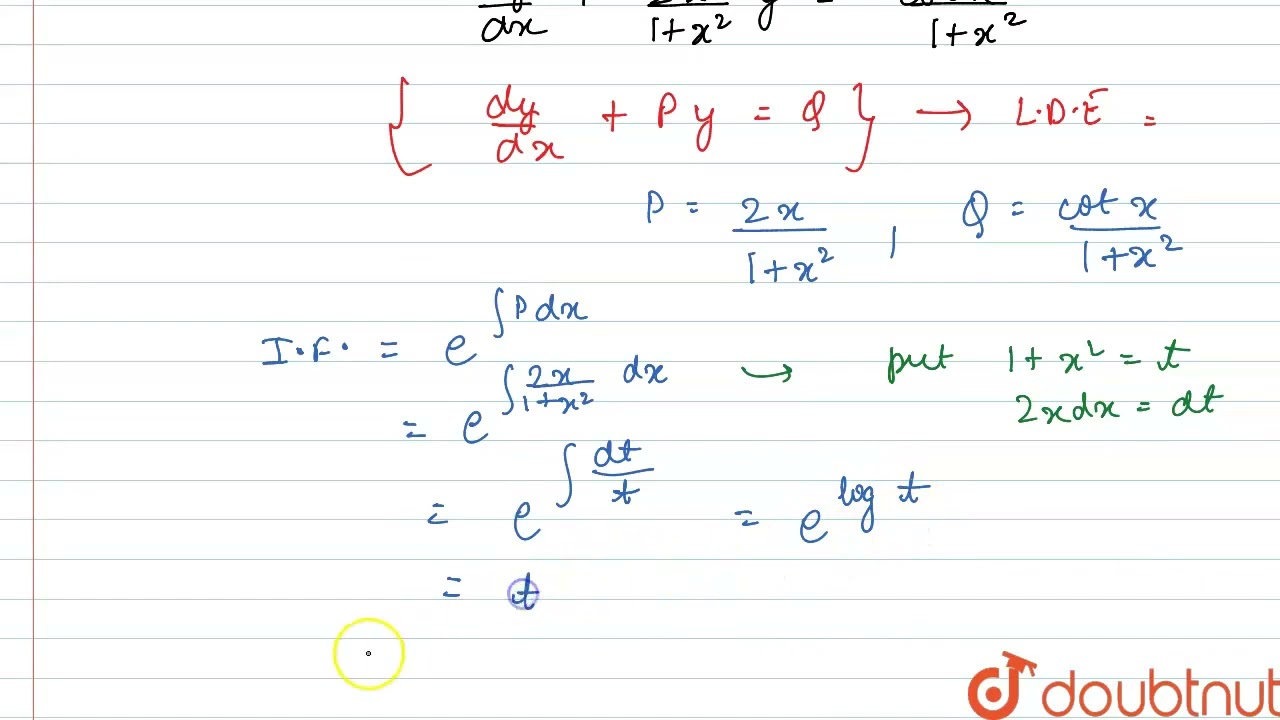 dx 1+x² y 1+x²
{ dy/dx + Py = Q } → L.D.E =
P = 2x/1+x² , Q = cot x/1+x²
I.F. = e^∫Pdx
= e^∫2x/1+x² dx → put 1+x² = t
2xdx = dt
= e^∫dt/t = e^log t
= t
doubtnut